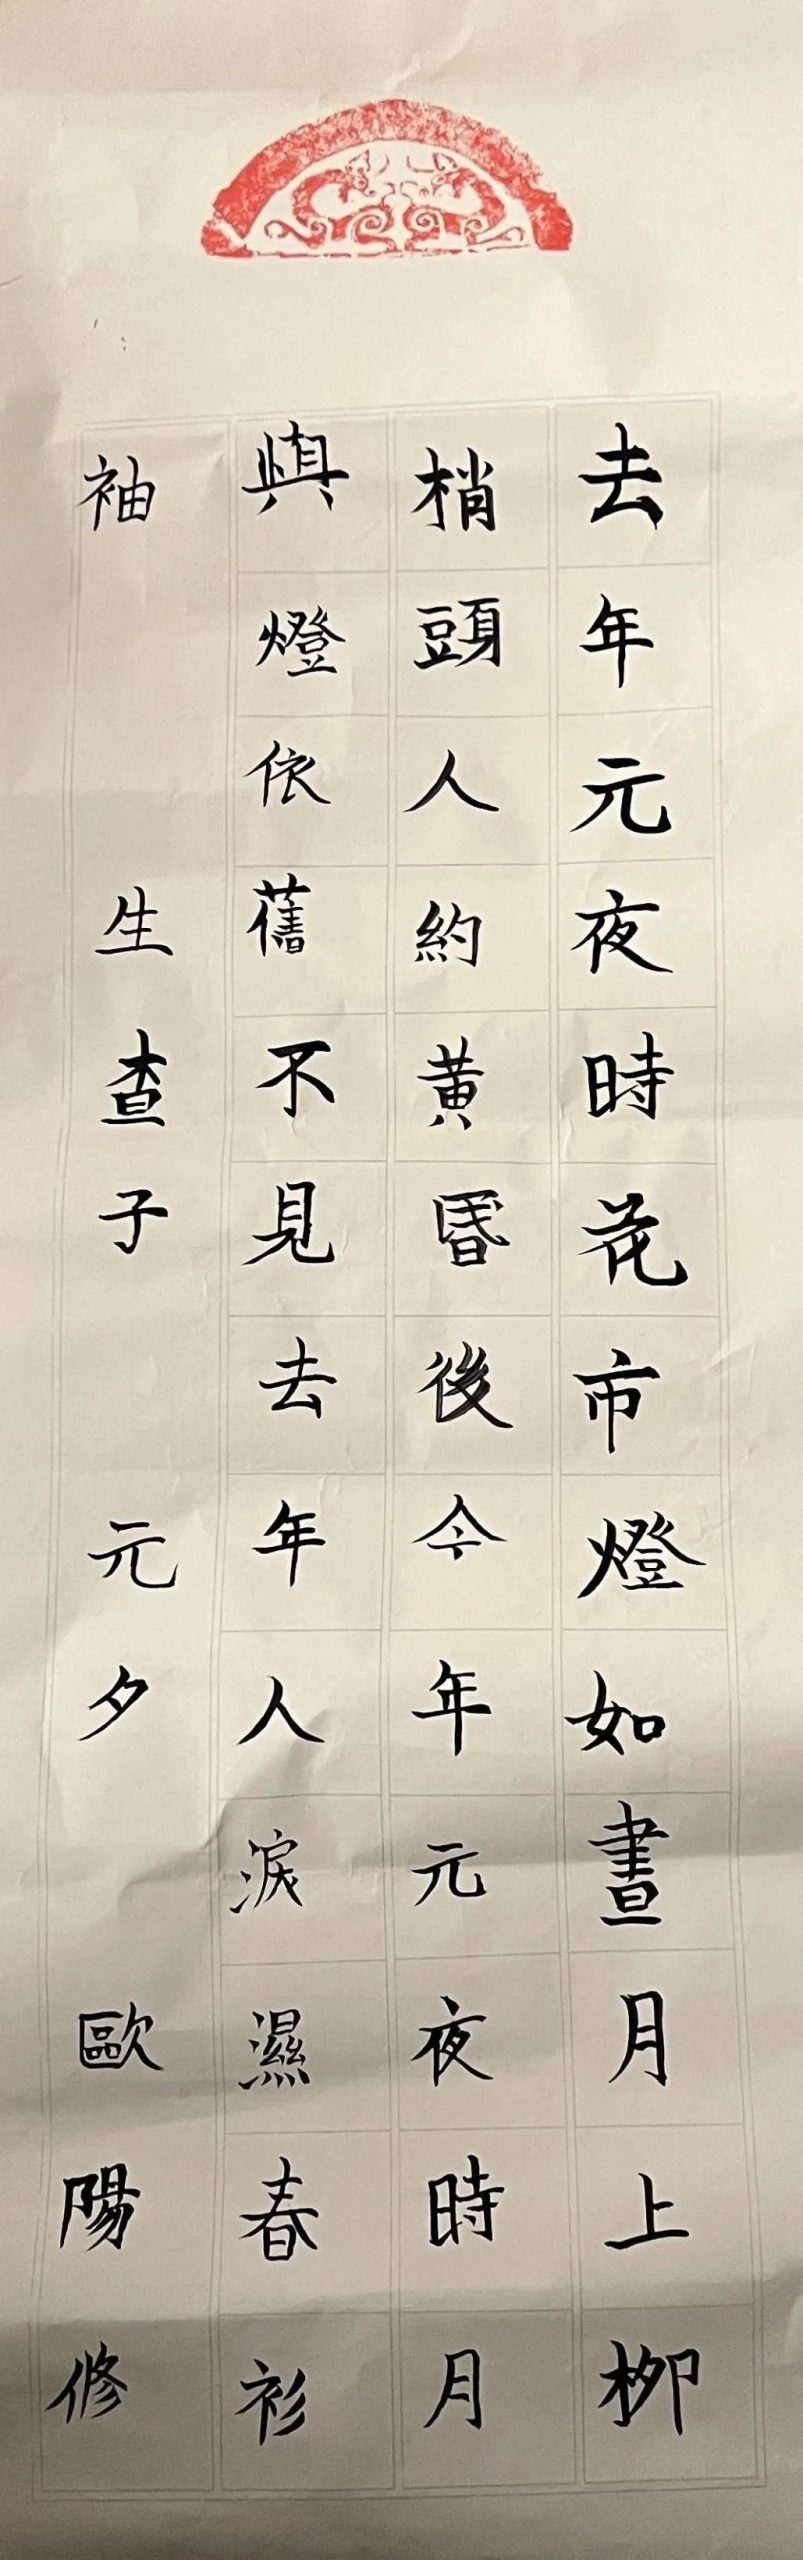 去年元夜時花市燈如晝月上柳
梢頭人約黃昬後今年元夜時月
與燈依舊不見去年人淚濕春衫
袖 生查子 元夕 歐陽修